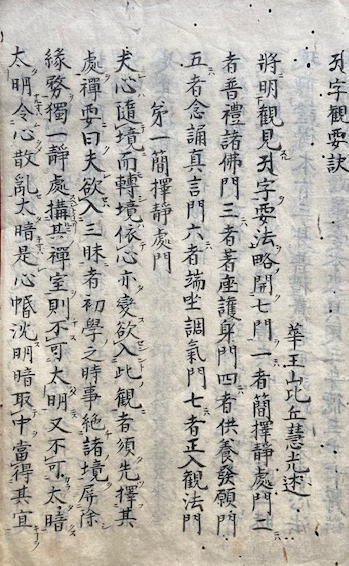 孔字觀要訣
華王山比丘慧光述
將明觀見孔字要法略開七門一者簡擇靜處門二
者普禮諸佛門三者著座護身門四者供養發願門
五者念誦真言門六者端坐調氣門七者正入觀法門
第一簡擇靜處門
夫心隨境而轉境依心亦變欲入此觀者須先擇其
處禪要曰夫欲入三昧者初學之時事絕諸境屏除
緣務獨一靜處搆其禪室則不可太明又不可太暗
太明令心散亂太暗是心惛沈明暗取中當得其宜